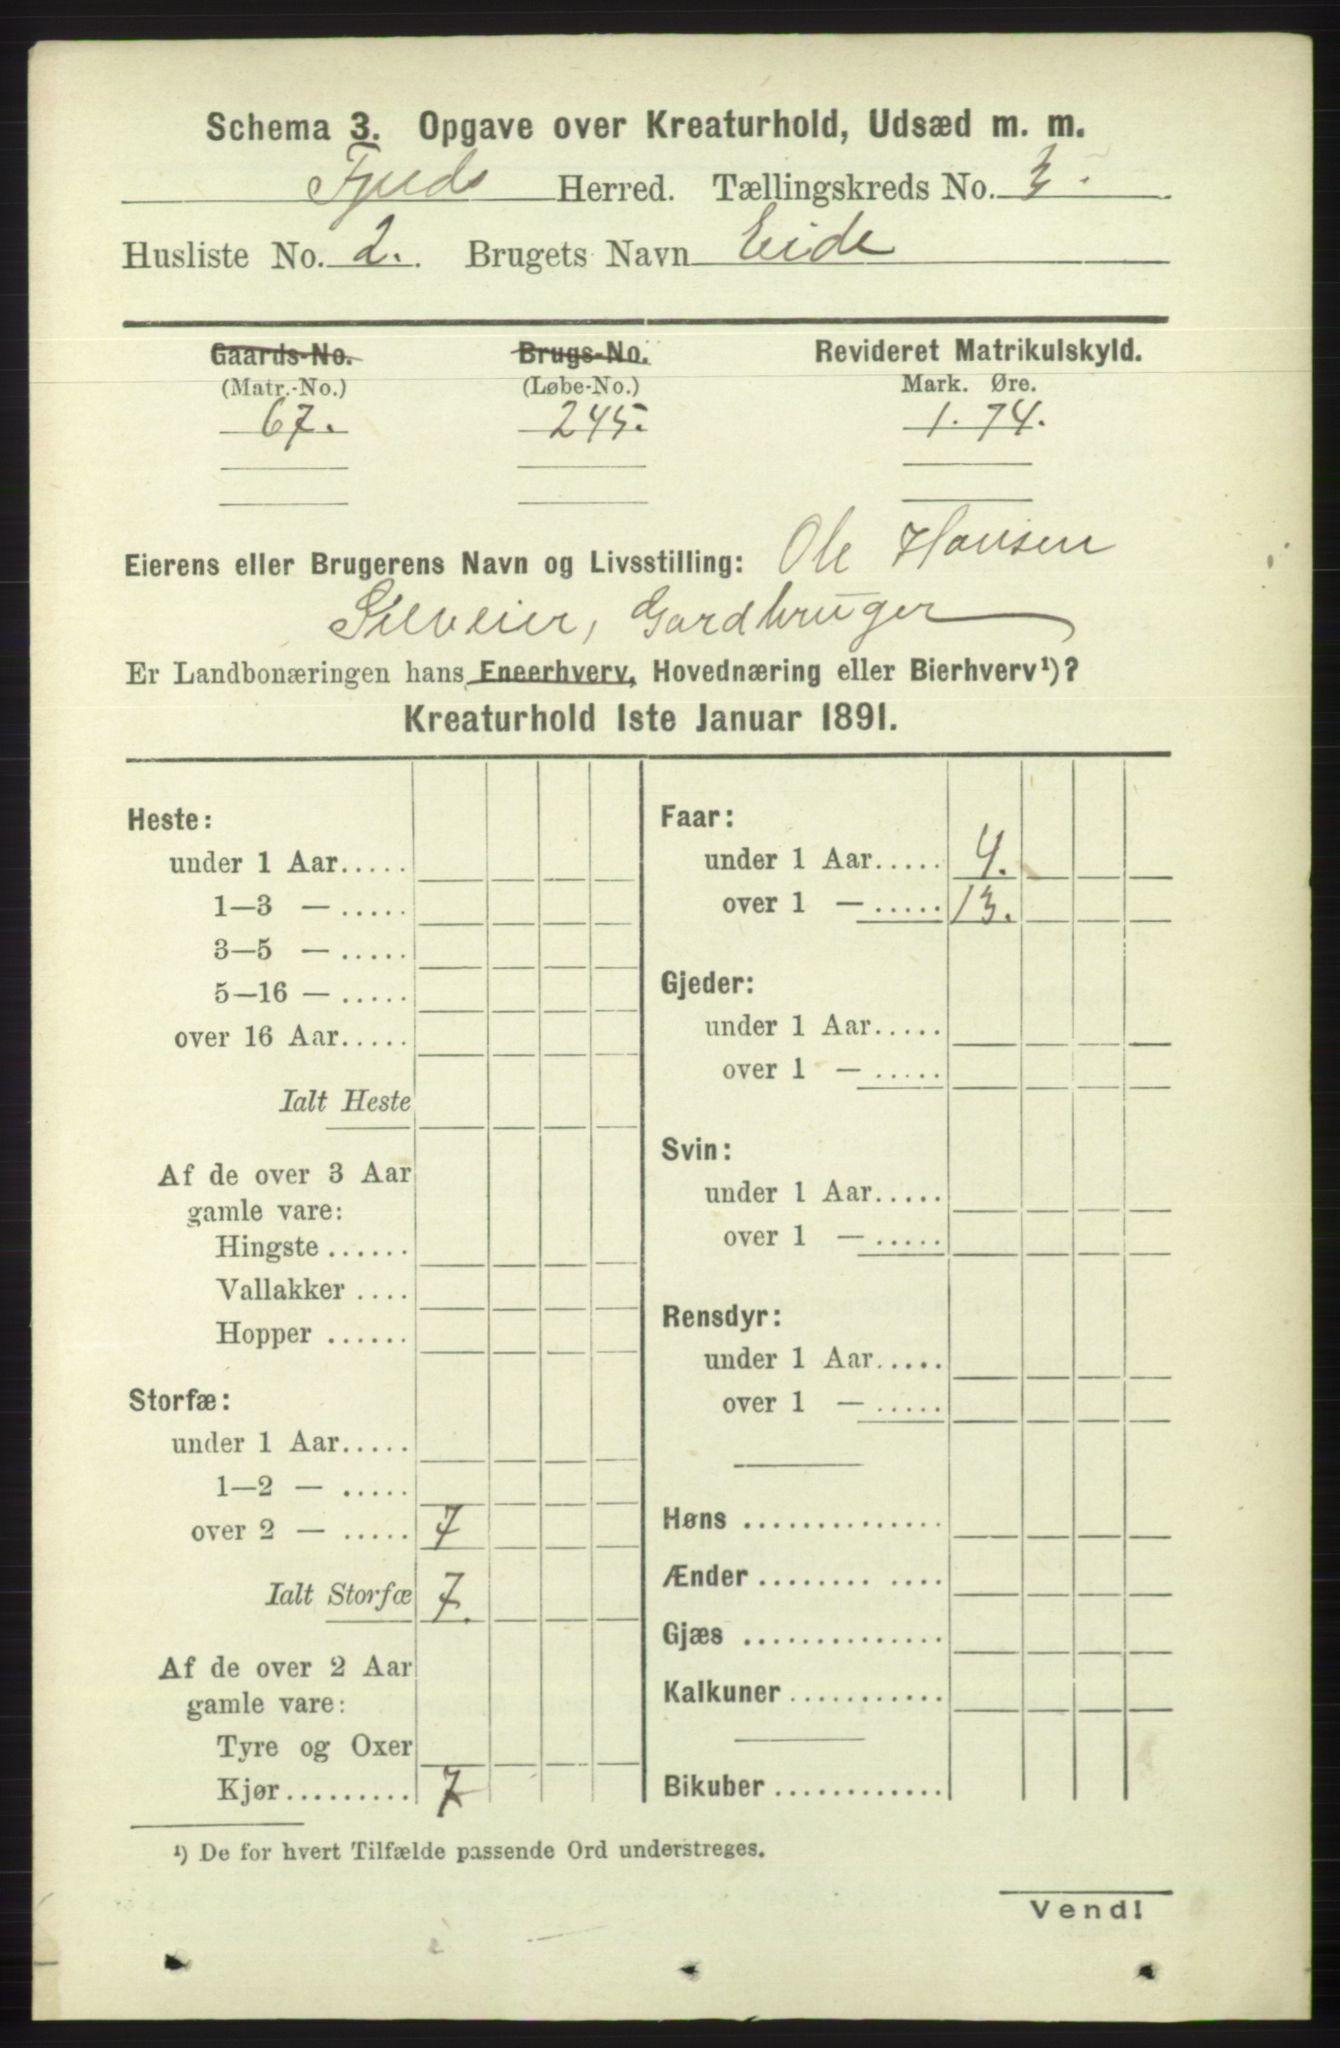 Schema 3. Opgave over Kreaturhold, Udsæd m. m.
Fjelds Herred. Tællingskreds No. 3.
Husliste No. 2. Brugets Navn Eide
Gaards-No. Brugs-No. Revideret Matrikulskyld.
(Matr.-No.) (Løbe-No.) Mark. Øre.
67. 245. 1. 74.
Eierens eller Brugerens Navn og Livsstilling: Ole Hansen
Gardbruger
Er Landbonæringen hans Eneerhverv, Hovednæring eller Bierhverv¹)?
Kreaturhold 1ste Januar 1891.
Heste:
under 1 Aar.....
1—3 — .....
3—5 — .....
5—16 — .....
over 16 Aar.....
Ialt Heste
Af de over 3 Aar
gamle vare:
Hingste ......
Vallakker ....
Hopper ......
Storfæ:
under 1 Aar.....
1—2 — .....
over 2 — ..... 7
Ialt Storfæ 7.
Af de over 2 Aar
gamle vare:
Tyre og Oxer
Kjør......... 7
Faar:
under 1 Aar..... 4.
over 1 — ..... 13.
Gjeder:
under 1 Aar.....
over 1 — .....
Svin:
under 1 Aar.....
over 1 — .....
Rensdyr:
under 1 Aar.....
over 1 — .....
Høns ..............
Ænder ........ ....
Gjæs ..............
Kalkuner...........
Bikuber............
¹) De for hvert Tilfælde passende Ord understreges.
Vend!